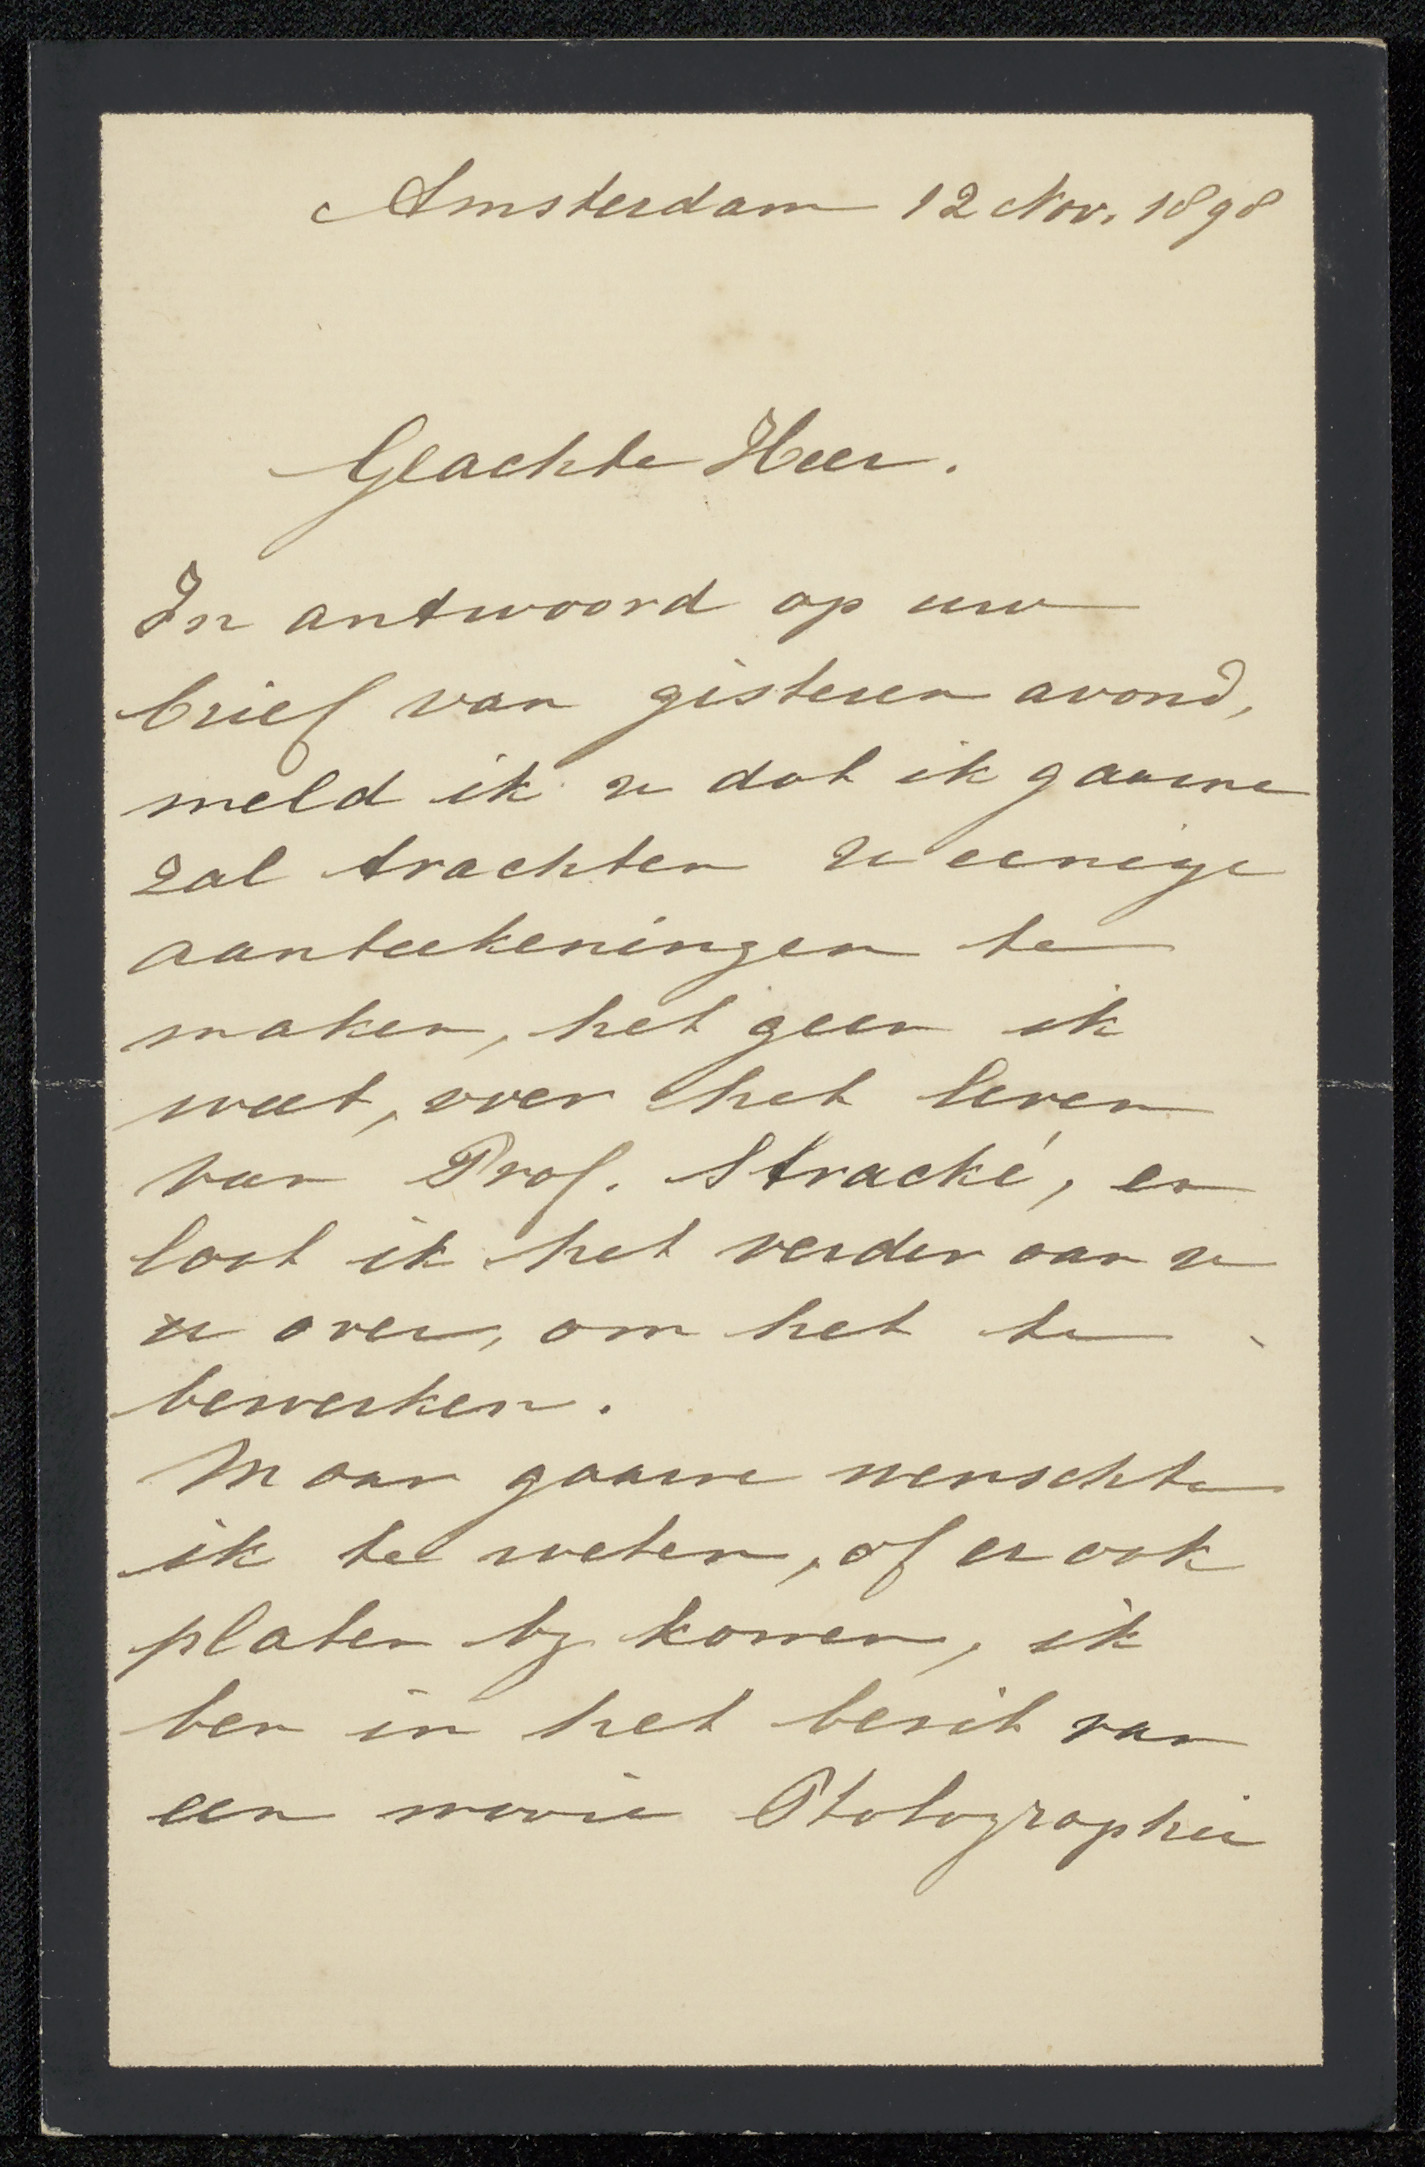 Amsterdam 12 Nov. 1898
Geachte Heer.
In antwoord op uw
brief van gisteren avond,
meld ik u dat ik gaarne
zal trachten u eenige
aanteekeningen te
maken, het geen ik
weet, over het leven
van Prof. Stracké, en
laat ik het verder aan u
u over, om het te
bewerken.
Maar gaarne wenschte
ik te weten, of er ook
platen bij komen, ik
ben in het bezit van
een mooie Photographie